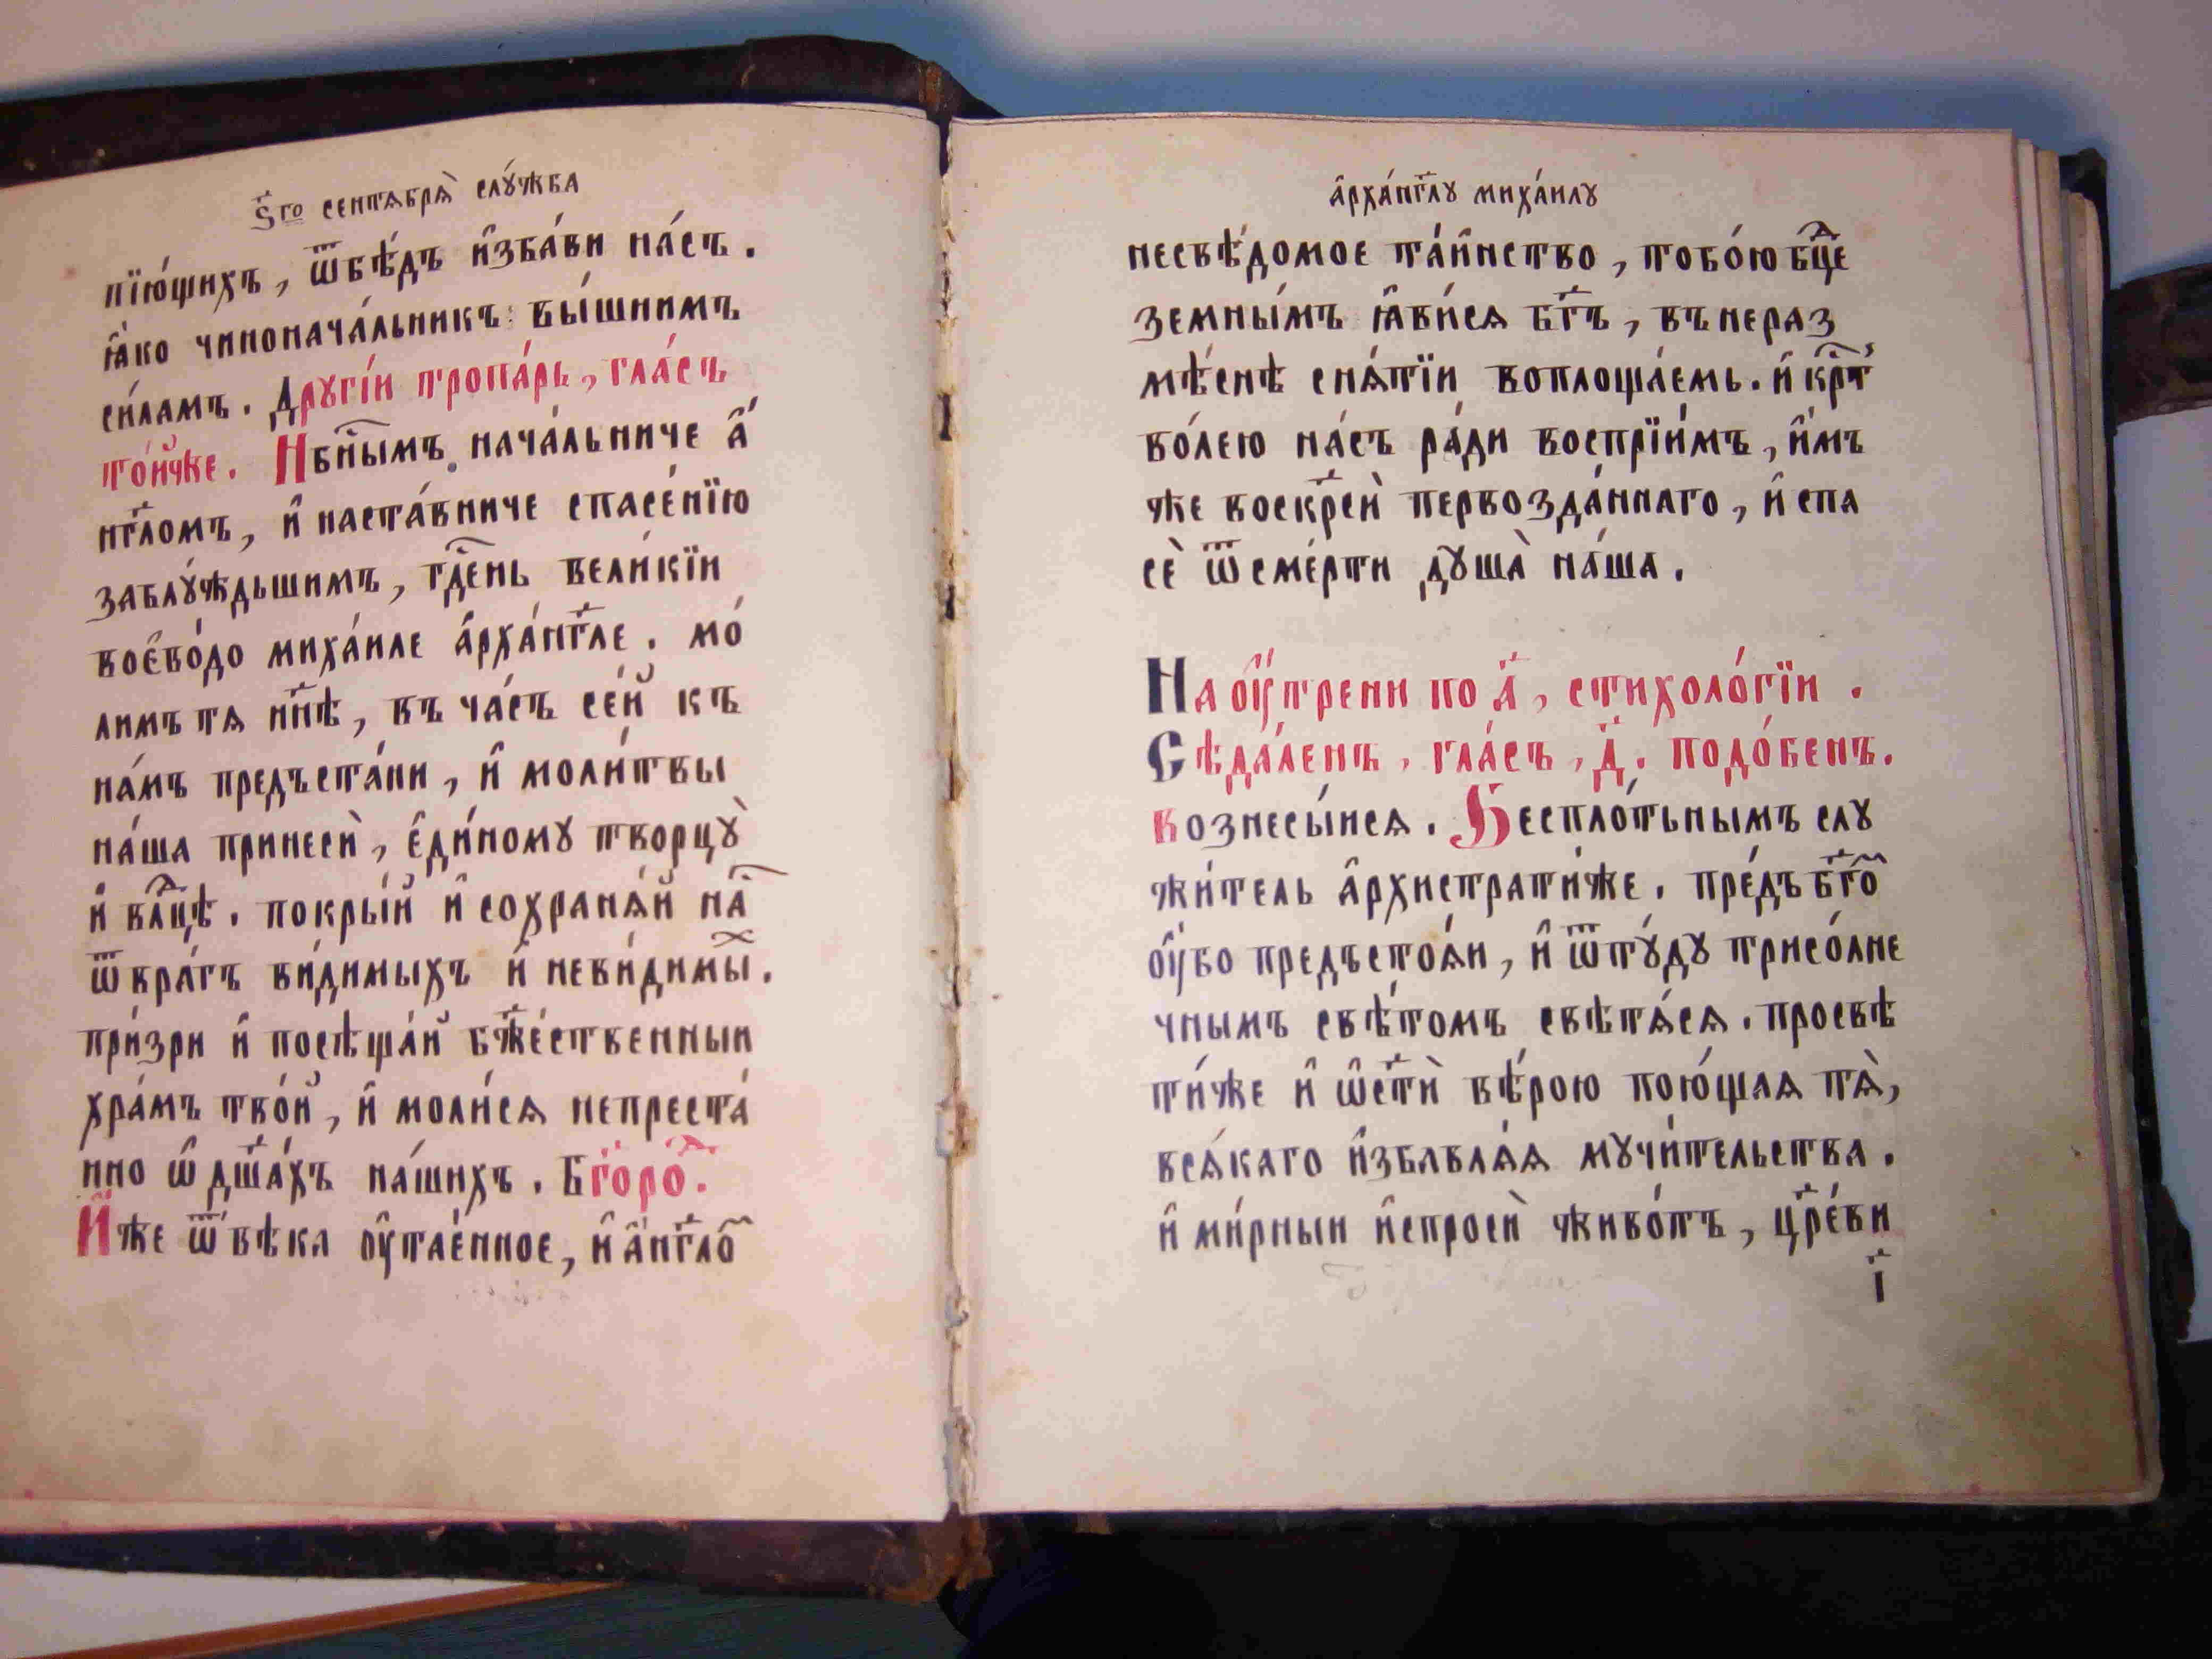 ѕ҃го сентѧбрѧ̀ слꙋ́жба
пїю́щихъ, ѿбѣ́дъ и҆зба́ви на́съ.
ꙗ҆́ко чинонача́льникъ вы́шнимъ
си́ламъ. Другі́и тропа́рь, гла́съ
то́йже. Нб҃ны́мъ нача́льниче а҆́
нг҃ломъ, и҆ наста́вниче спасе́нїю
заблꙋ́ждьшимъ, гдⷭ҇ень вели́кїи
воєво́до миха́иле а҆рха́нг҃ле. мо́
лимъ тѧ нн҃ѣ, въ ча́съ се́й къ
на́мъ предъста́ни, и҆ моли́твы
на́ша принесѝ, є҆ди́номꙋ творцꙋ̀
и҆ влⷣцѣ. покры́й и҆ сохранѧ́й на́с
ѿ вра́гъ ви́димыхъ и҆ неви́димыⷯ.
при́зри и҆ посѣща́й бж҃е́ственныи
хра́мъ тво́й, и҆ моли́сѧ непреста́
нно ѡ҆ дш҃а́хъ на́шихъ. Бг҃оро́ⷣ.
И҆́же ѿ вѣ́ка ᲂу҆тае́нное, и҆ а҆́нг҃лоⷨ
а҆рха́нг҃лꙋ миха́илꙋ
несвѣ́домое та́инство, тобо́ю бцⷣе
земны́мъ ꙗ҆ви́сѧ бг҃ъ, въ нераз
мѣ́снѣ снѧ́тїи воплоща́емь. и҆ крⷭ҇тъ
во́лею на́съ ра́ди воспрїи́мъ, и҆́мъ
же воскр҃сѝ первозда́ннаго, и҆ спа
сѐ ѿ сме́рти дꙋша̀ на́ша.
На ᲂу҆́трени по а҃, стихоло́гїи.
Сѣда́ленъ, гла́съ, д҃. подо́бенъ.
вознесы́исѧ. Бесплѡ́тьнымъ слꙋ
жи́тель а҆рхистрати́же. пре́дъ бг҃оⷨ
ᲂу҆́бо предъстоѧ́и, и҆ ѿтꙋ́дꙋ трисо́лне
чнымъ свѣ́томъ свѣтѧ́сѧ. просвѣ
ти́же и҆ ѡ҆ст҃ѝ вѣ́рою пою́щаѧ тѧ̀,
всѧ́каго и҆збавлѧ́ѧ мꙋчи́тельства.
и҆ ми́рныи и҆спросѝ живо́тъ, цр҃е́ви
і҃